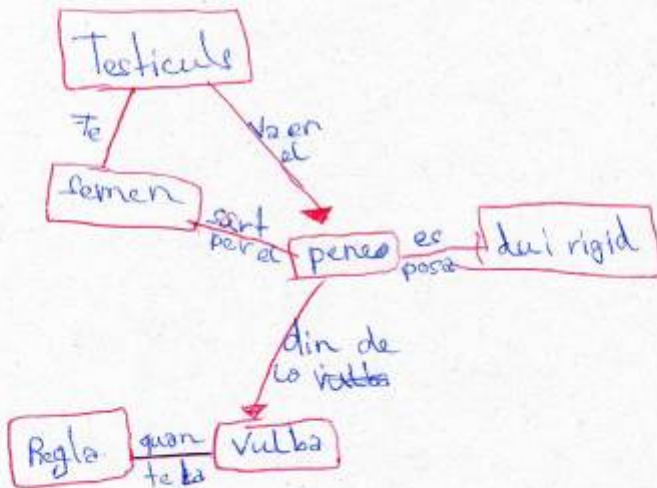 Testiculs
Te
Va en
el
semen
sart
per el
penes
es
posa
dui rigid
din de
la vulba
Regla
quan
te la
Vulba